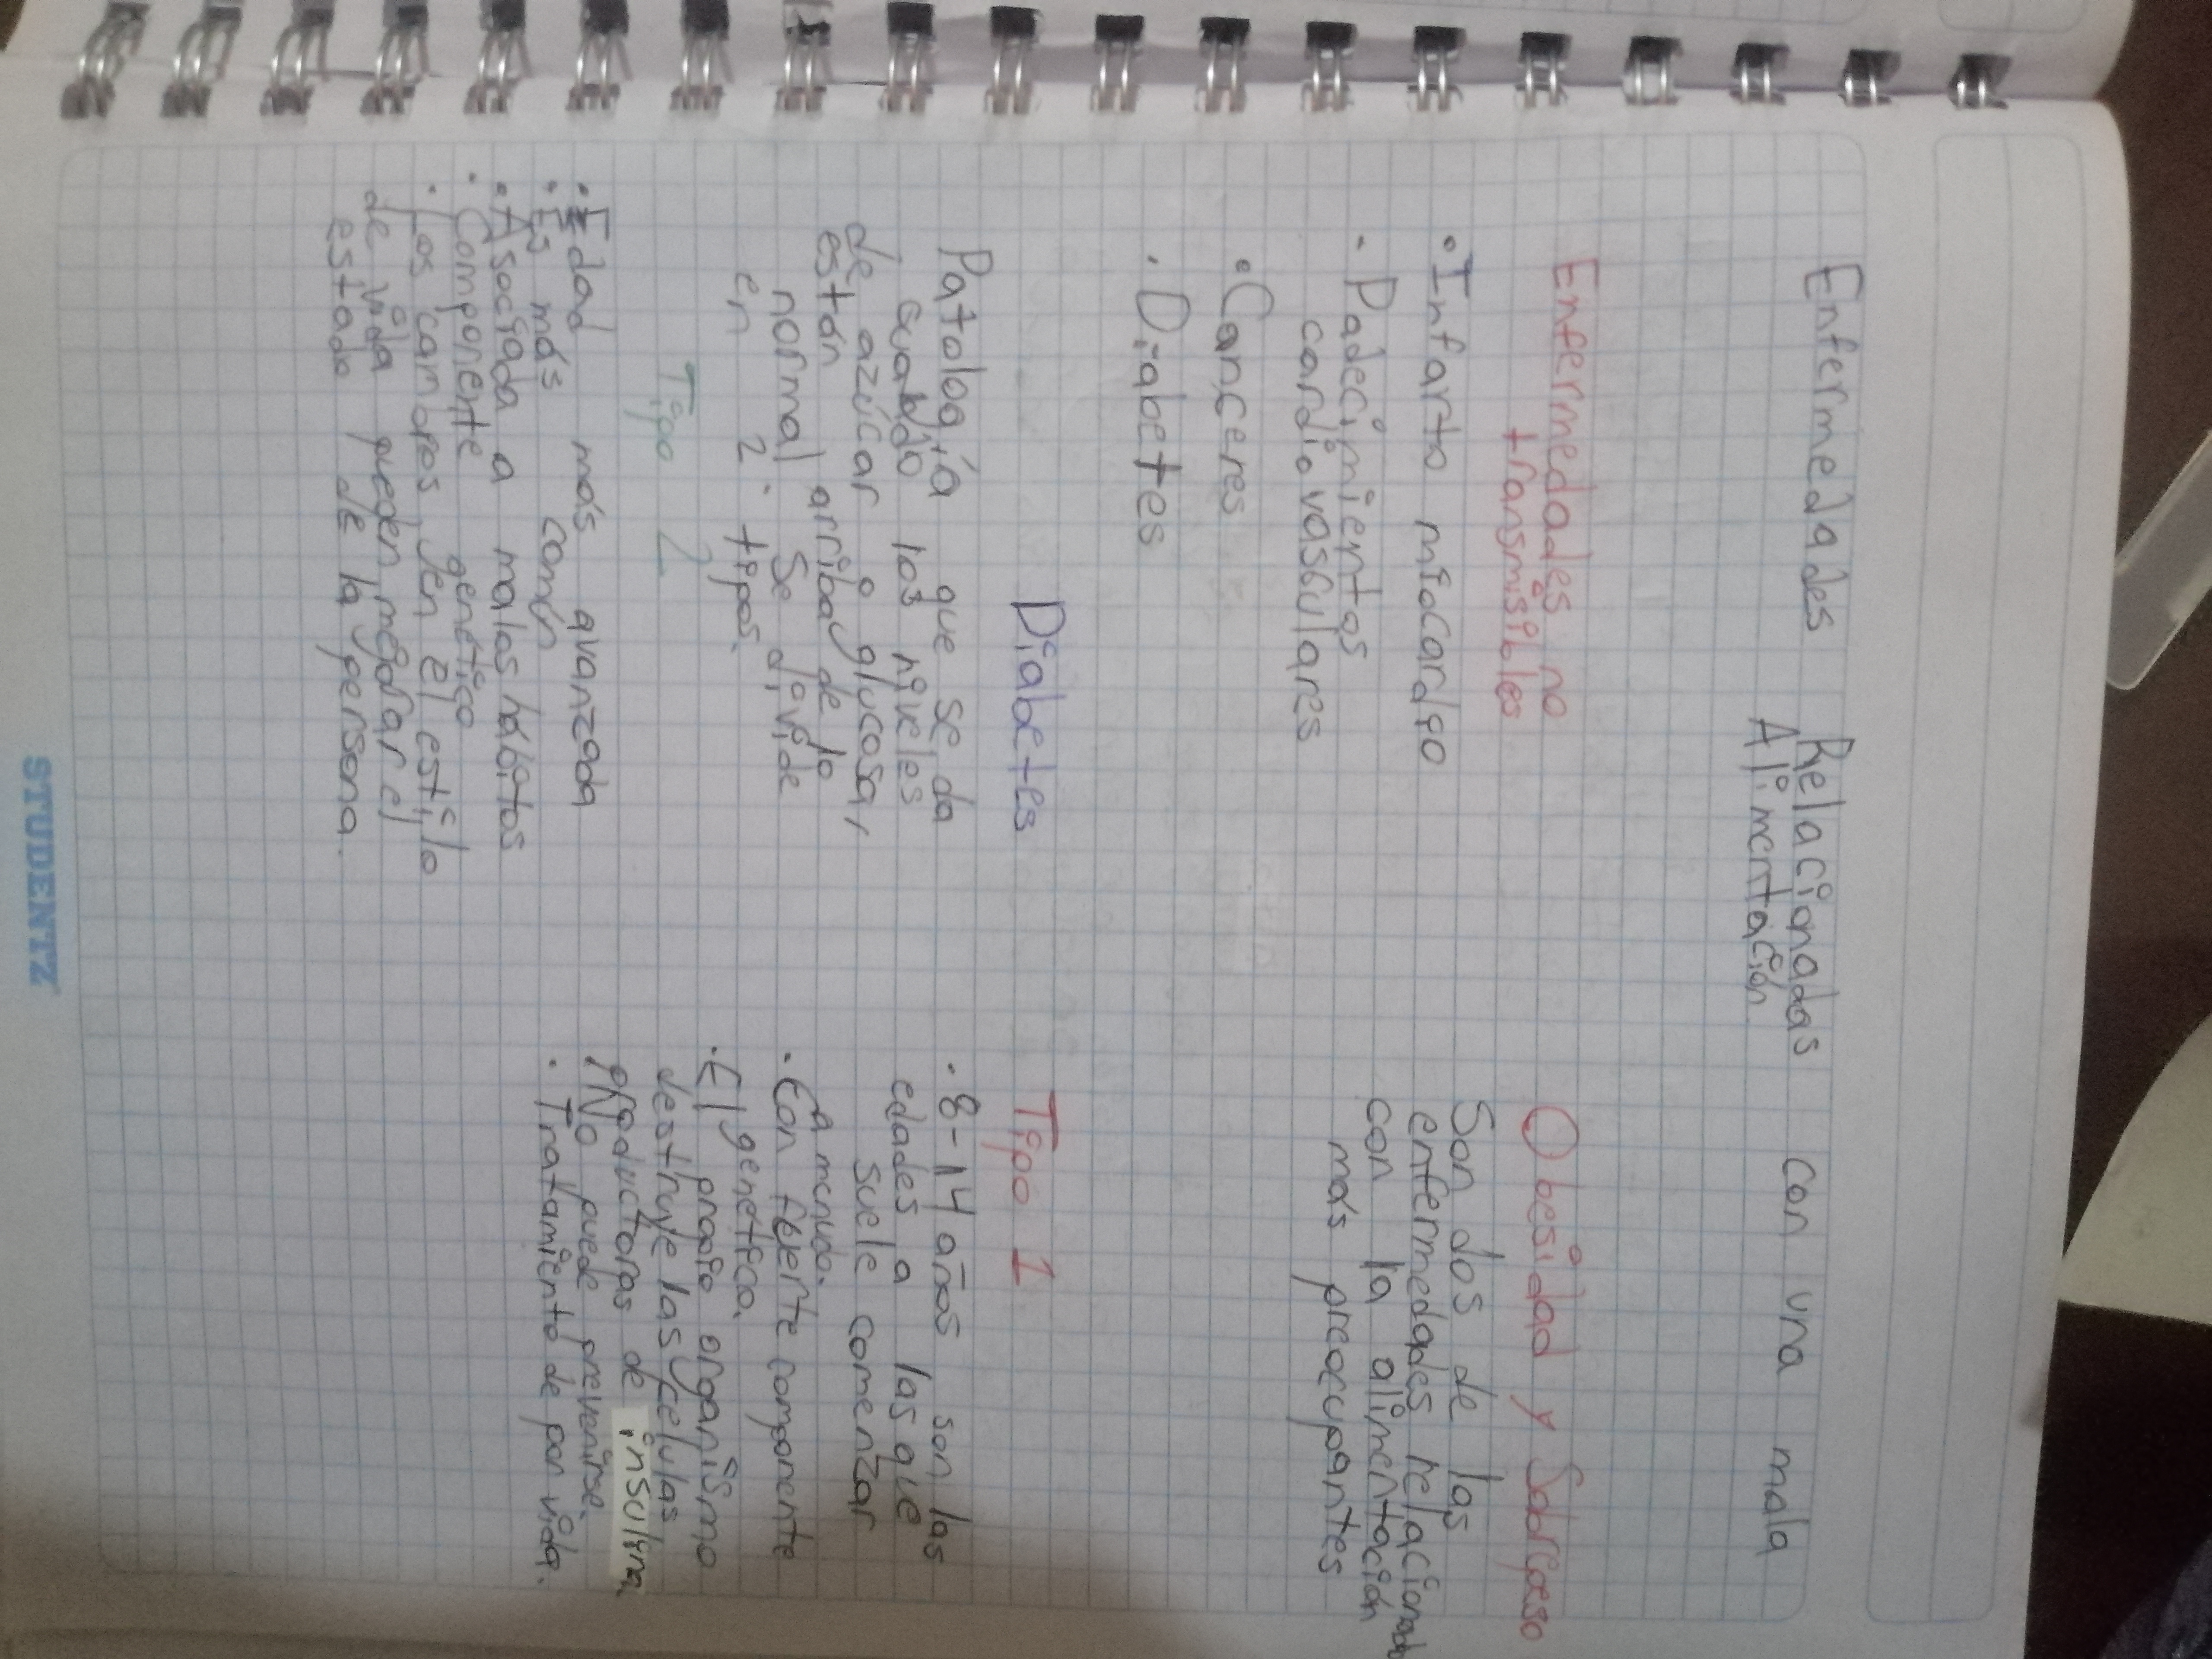 Enfermedades Relacionadas con una mala
Alimentación
Enfermedades no
transmisibles
• Infarto miocardio
• Padecimientos
cardiovasculares
• Canceres
• Diabetes
Obesidad y Sobrepeso
Son dos de las
enfermedades relacionada
con la alimentación
más preocupantes
Diabetes
Patología que se da
cuando los niveles
de azúcar o glucosa,
están arriba de lo
normal. Se divide
en 2 tipos.
Tipo 1
• 8-14 años son las
edades a las que
suele comenzar
a menudo.
• Con fuerte componente
genética.
• El propio organismo
destruye las celulas
productoras de insulina.
No puede prevenirse.
• Tratamiento de por vida.
Tipo 2
• Edad más avanzada
• Es más común
• Asociada a malos hábitos
• Componente genético
• Los cambios en el estilo
de vida pueden mejorar el
estado de la persona.
STUDENTZ